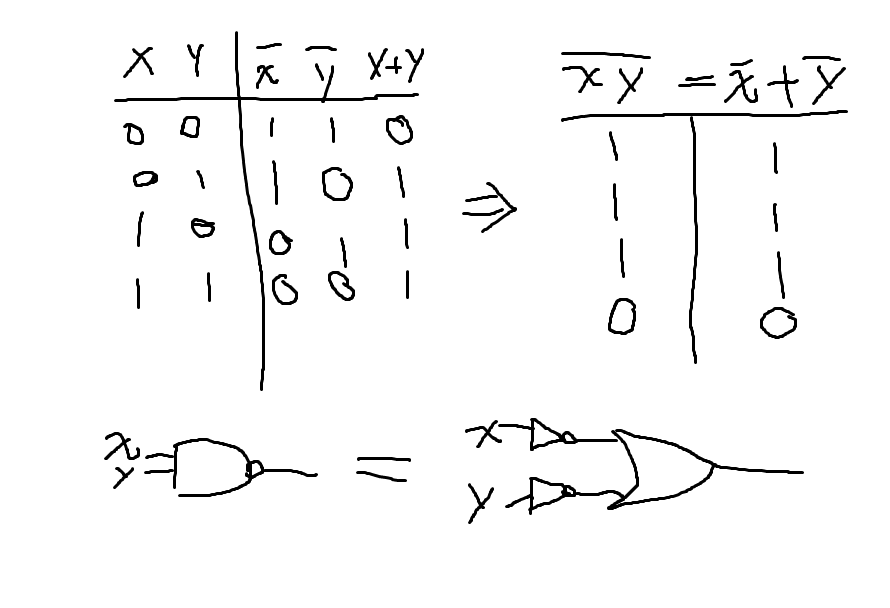 X Y x̄ ȳ X+Y
0 0 1 1 0
0 1 1 0 1
1 0 0 1 1
1 1 0 0 1
⇒
x̅y̅ = x̄ + ȳ
1 1
1 1
1 1
0 0
x
y
=
x
y